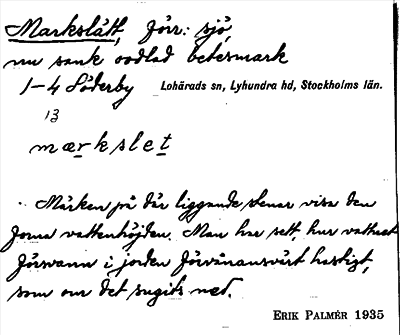 Markslätt, förr: sjö,
nu sank oodlad betesmark
1-4 Söderby Lohärads sn, Lyhundra hd, Stockholms län.
13
mærkslet
Märken på där liggande stenar visa den
forna vattenhöjden. Man har sett, hur vattnet
försvann i jorden förvånansvärt hastigt,
som om det sugits ned.
ERIK PALMÉR 1935